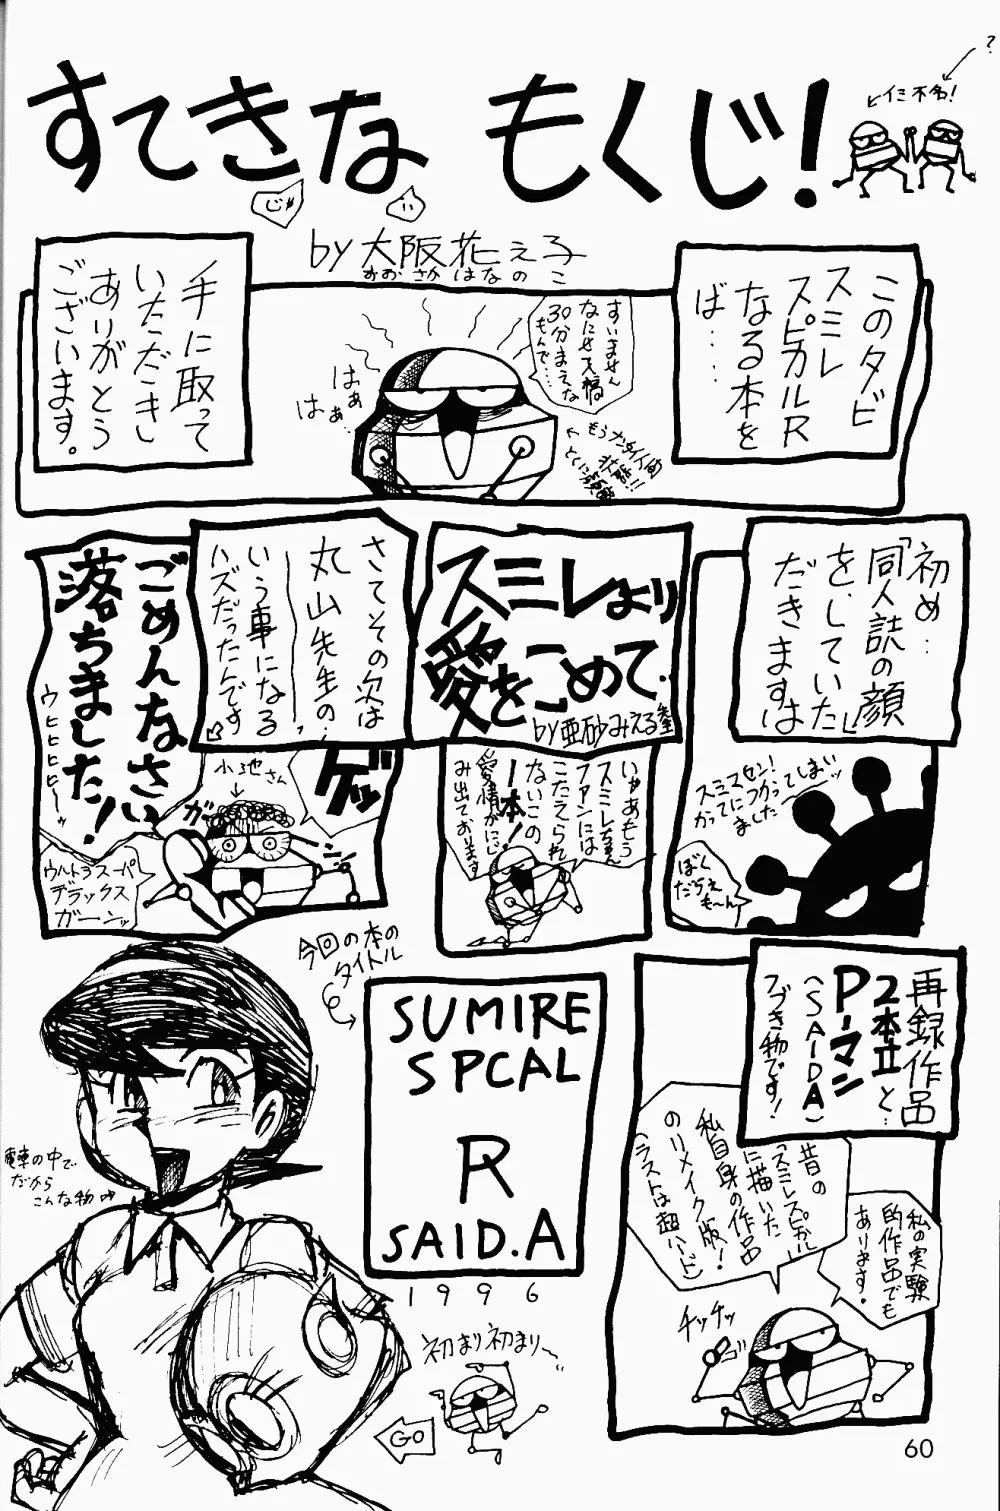 すてきな もくじ!
じゃ
い
?
イミ不名!
by 大阪花え子
おおさかはなのこ
このタビ
スミレ
スピカルR
なる本を
ば…
手に取って
いただきし
ありがとう
ございます。
すいません
なにせ天稿
30分まえな
もんで…
はぁ
はぁ…
初め…
「同人誌の顔」
を、していた
だきますは
スミマセン!
かってにつかって
しまいました
ぼく
だちえ
も〜ん
スミレより
愛をこめて。
by 亜砂みえる
いゃあもう
スミレちゃん
ファンには
こたえられ
ないこの
一本!
愛情がにじ
み出ております
さてその次は
丸山先生の…
という事になる
ハズだったんです
ゲッ
小池さん
ガーン
ごめんなさい
落ちました!
ウヒヒヒヒ〜ッ
ウルトラスーパー
デラックス
ガーンッ
再録作品
2本立と…
P-マン
(SAIDA)
つづき物です!
昔の
「スミレスピカル」
に描いた
私自身の作品
のリメイク版!
(ラストは超ハード)
私の実験
的作品でも
あります。
チッチッ
今回の本の
タイトル
SUMIRE
SPCAL
R
SAID.A
1996
電車の中で
だから
こんな物
初まり初まり〜
GO
60